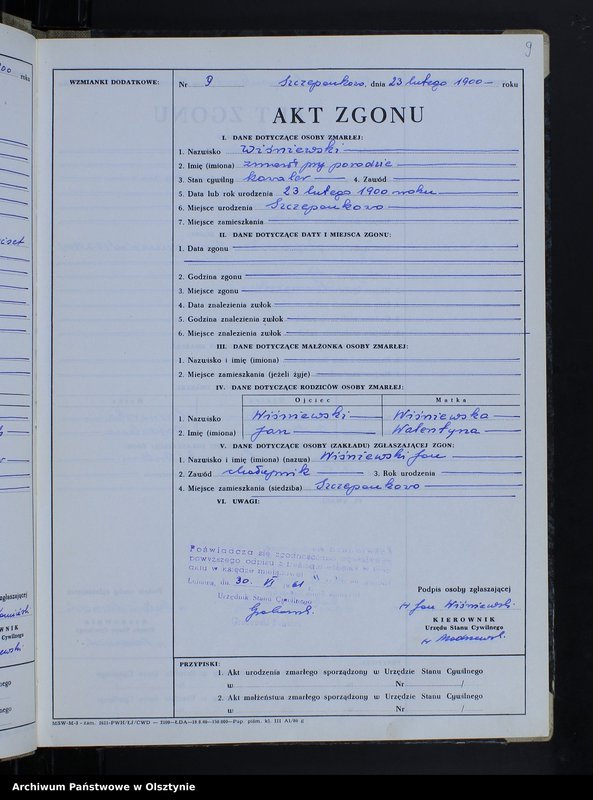 9
WZMIANKI DODATKOWE:
Nr 9 Szczepankowo, dnia 23 lutego 1900 — roku
AKT ZGONU
I. DANE DOTYCZĄCE OSOBY ZMARŁEJ:
1. Nazwisko Wiśniewski
2. Imię (imiona) zmarł przy porodzie
3. Stan cywilny kawaler 4. Zawód
5. Data lub rok urodzenia 23 lutego 1900 roku
6. Miejsce urodzenia Szczepankowo
7. Miejsce zamieszkania
II. DANE DOTYCZĄCE DATY I MIEJSCA ZGONU:
1. Data zgonu
2. Godzina zgonu
3. Miejsce zgonu
4. Data znalezienia zwłok
5. Godzina znalezienia zwłok
6. Miejsce znalezienia zwłok
III. DANE DOTYCZĄCE MAŁŻONKA OSOBY ZMARŁEJ:
1. Nazwisko i imię (imiona)
2. Miejsce zamieszkania (jeżeli żyje)
IV. DANE DOTYCZĄCE RODZICÓW OSOBY ZMARŁEJ:
Ojciec Matka
1. Nazwisko Wiśniewski Wiśniewska
2. Imię (imiona) Jan Walentyna
V. DANE DOTYCZĄCE OSOBY (ZAKŁADU) ZGŁASZAJĄCEJ ZGON:
1. Nazwisko i imię (imiona) (nazwa) Wiśniewski Jan
2. Zawód chałupnik 3. Rok urodzenia
4. Miejsce zamieszkania (siedziba) Szczepankowo
VI. UWAGI:
Poświadcza się zgodność
powyższego odpisu z treścią
aktu w księdze
dn. 30. VI 61
Urzędnik Stanu Cywilnego
Podpis osoby zgłaszającej
Jan Wiśniewski
KIEROWNIK
Urzędu Stanu Cywilnego
PRZYPISKI:
1. Akt urodzenia zmarłego sporządzony w Urzędzie Stanu Cywilnego
w Nr /
2. Akt małżeństwa zmarłego sporządzony w Urzędzie Stanu Cywilnego
w Nr /
Archiwum Państwowe w Olsztynie